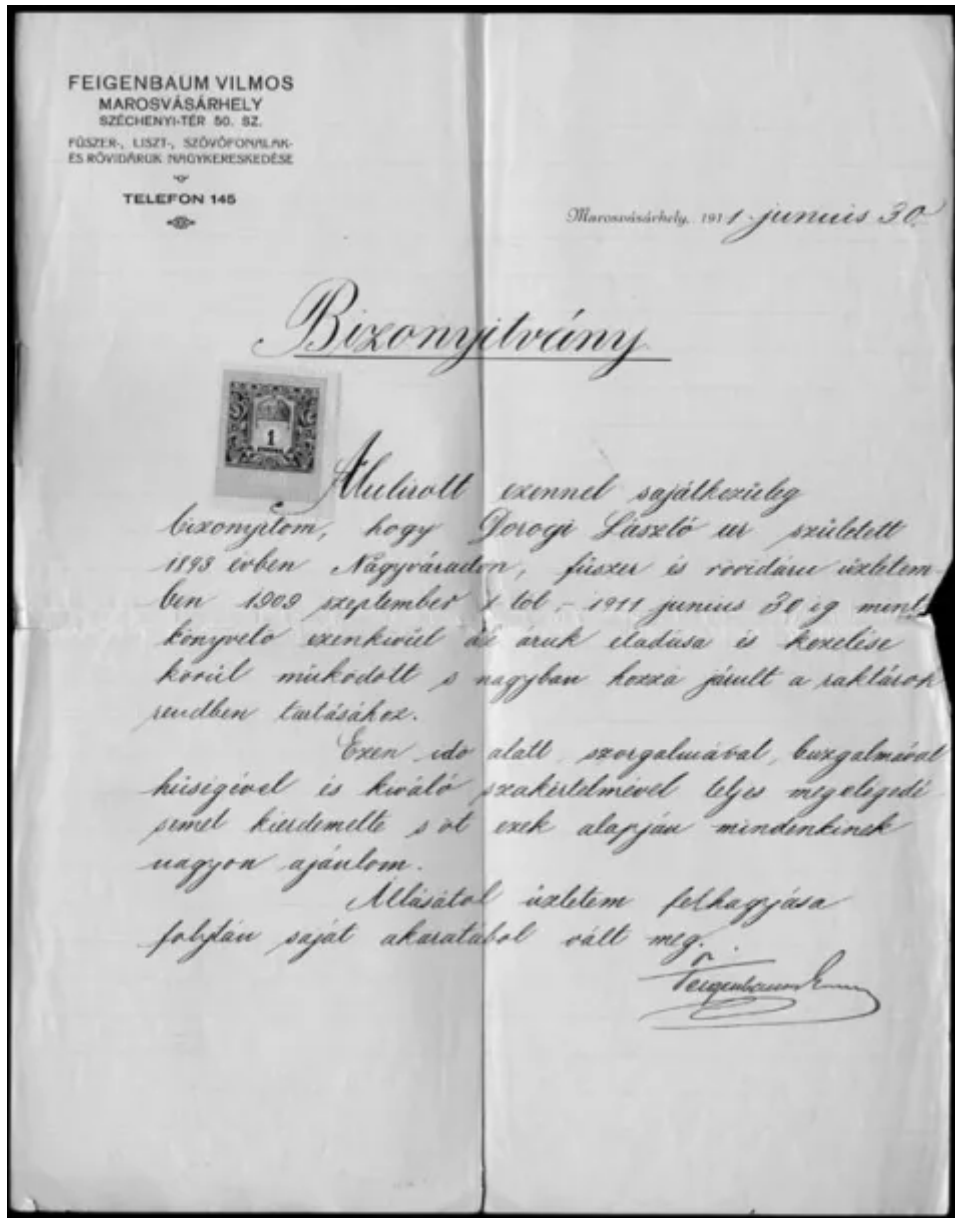 FEIGENBAUM VILMOS
MAROSVÁSÁRHELY
SZÉCHENYI-TÉR 50. SZ.
FŰSZER-, LISZT-, SZÖVŐFONALAK-
ÉS RÖVIDÁRUK NAGYKERESKEDÉSE
TELEFON 145
Marosvásárhely, 1911 junius 30.
Bizonyitvány
1
Alulirott ezennel sajátkezüleg
bizonyitom, hogy Dorogi László ur született
1893 évben Nagyváradon, füszer és rövidáru üzletem-
ben 1909 szeptember 1 től - 1911 junius 30 ig mint
könyvelő ezenkivül az áruk eladása és kezelése
körül müködött s nagyban hozzá járult a raktárok
rendben tartásához.
Ezen idő alatt szorgalmával, buzgalmával
hüségével és kiváló szakértelmével teljes megelégedé
semet kiérdemelte s őt ezek alapján mindenkinek
nagyon ajánlom.
Állásától üzletem felhagyása
folytán saját akaratából vált meg.
Feigenbaum